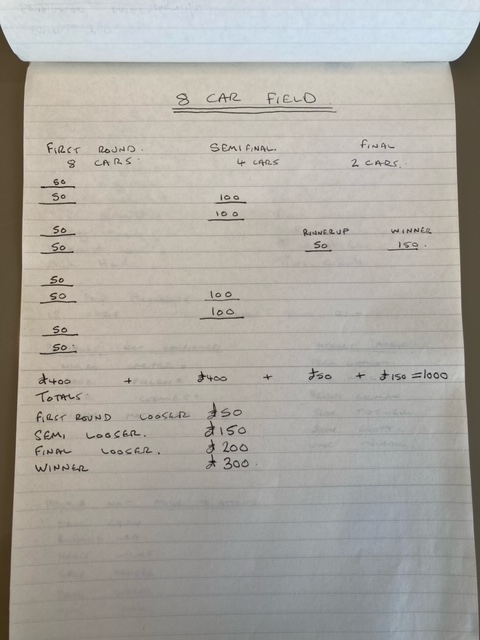 8 CAR FIELD
FIRST ROUND. SEMIFINAL. FINAL
8 CARS. 4 CARS 2 CARS.
50
50 100
100
50 RUNNERUP WINNER
50 50 150.
50
50 100
100
50
50.
£400 + £400 + £50 + £150 = 1000
TOTALS
FIRST ROUND LOOSER £50
SEMI LOOSER. £150
FINAL LOOSER. £200
WINNER £300.